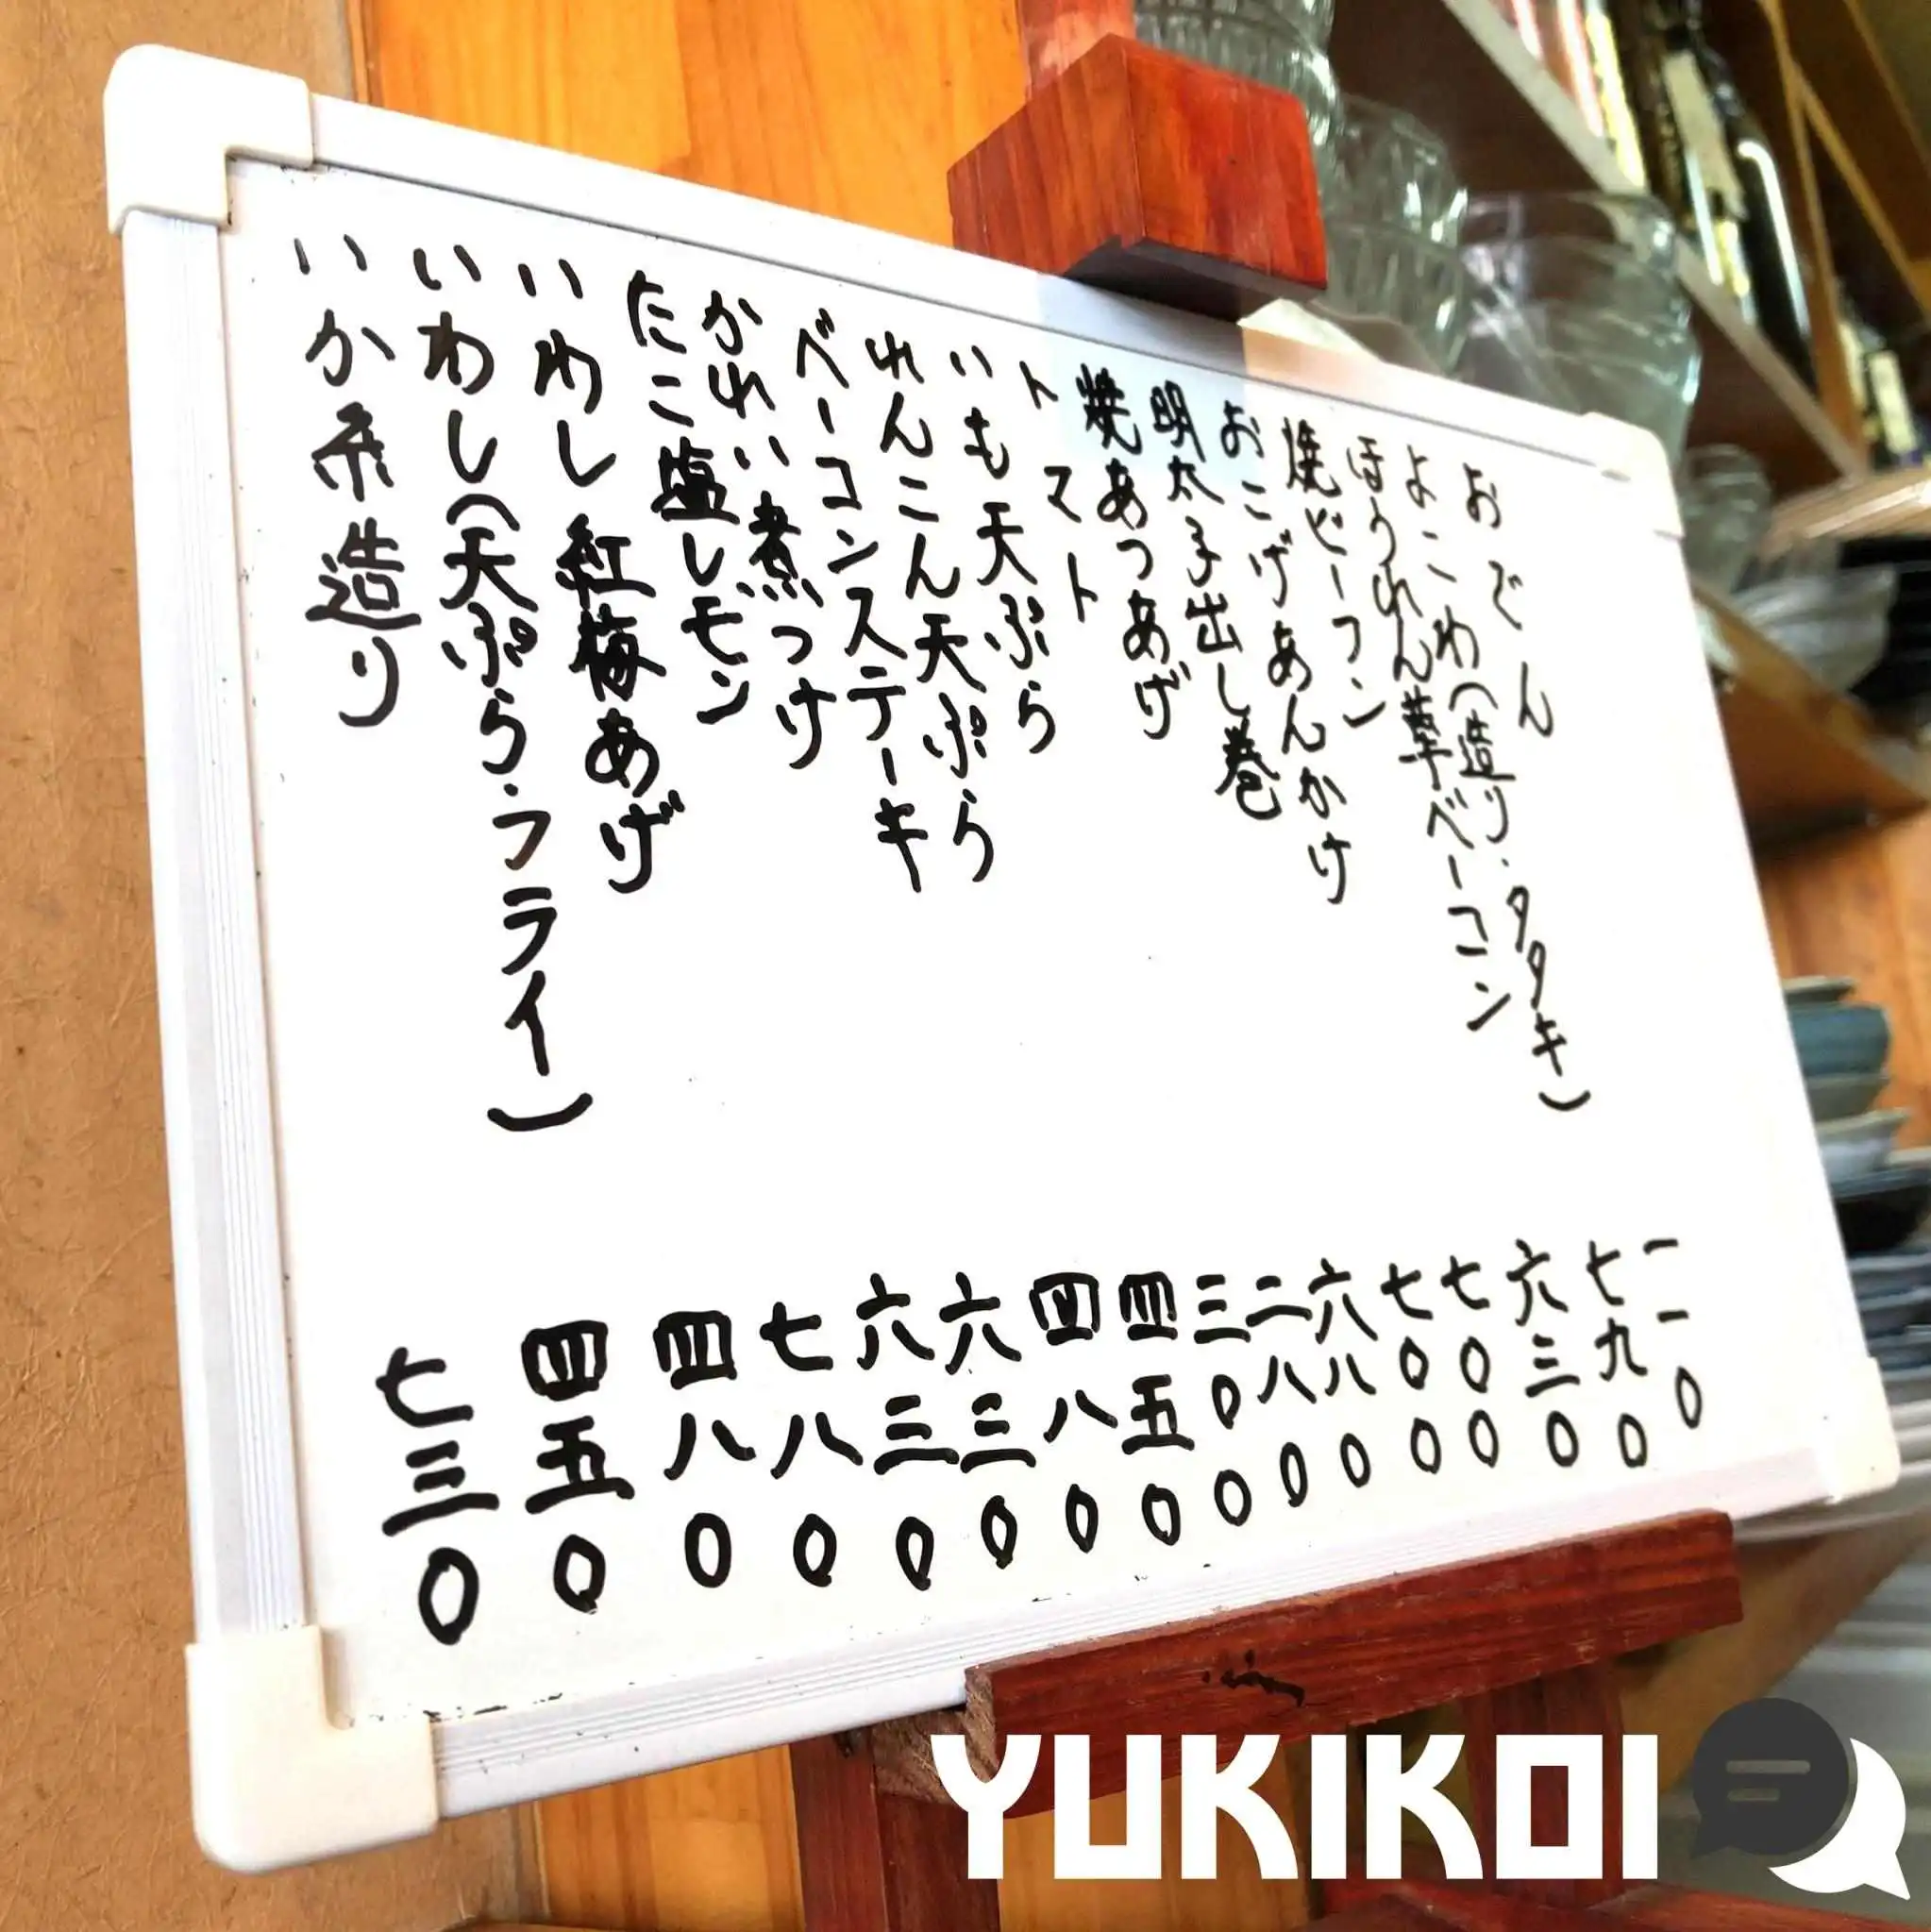 おでん 一一0
よこわ(造り・タタキ) 七九0
ほうれん草ベーコン 六三0
焼ビーフン 七00
おこげあんかけ 七00
明太子出し巻 六八0
焼あつあげ 二八0
トマト 三00
いも天ぷら 四五0
れんこん天ぷら 四八0
ベーコンステーキ 六三0
かれい煮つけ 六三0
たこ塩レモン 七八0
いわし紅梅あげ 四八0
いわし(天ぷら・フライ) 四五0
いか糸造り 七三0
YUKIKOI